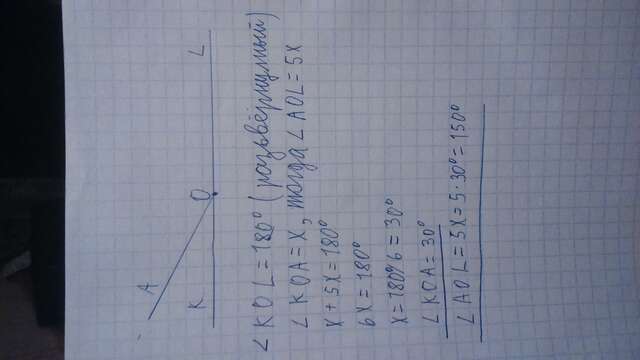 A
K O L
∠KOL=180° (разьвёрнутый)
∠KOA=x, тогда ∠AOL=5x
x+5x=180°
6x=180°
x=180%6=30°
∠KOA=30°
∠AOL=5x=5·30°=150°